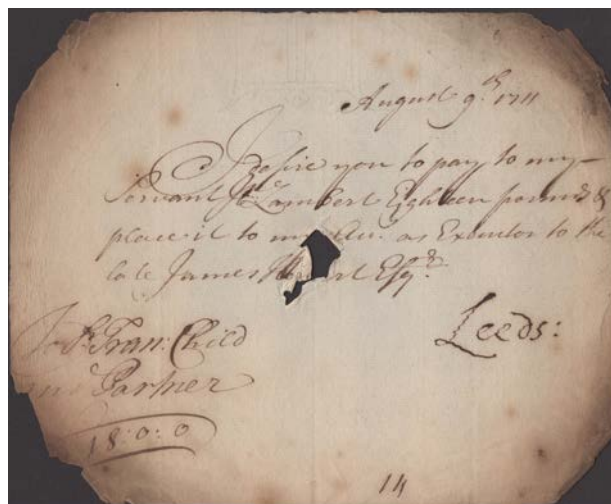 August 9th. 1711
I desire you to pay to my
Servant Lambert Eighteen pounds &
place it to my as Executor to the
late James Esqr.
Leeds:
To Sr. Fran: Child
Partner
18:0:0
14